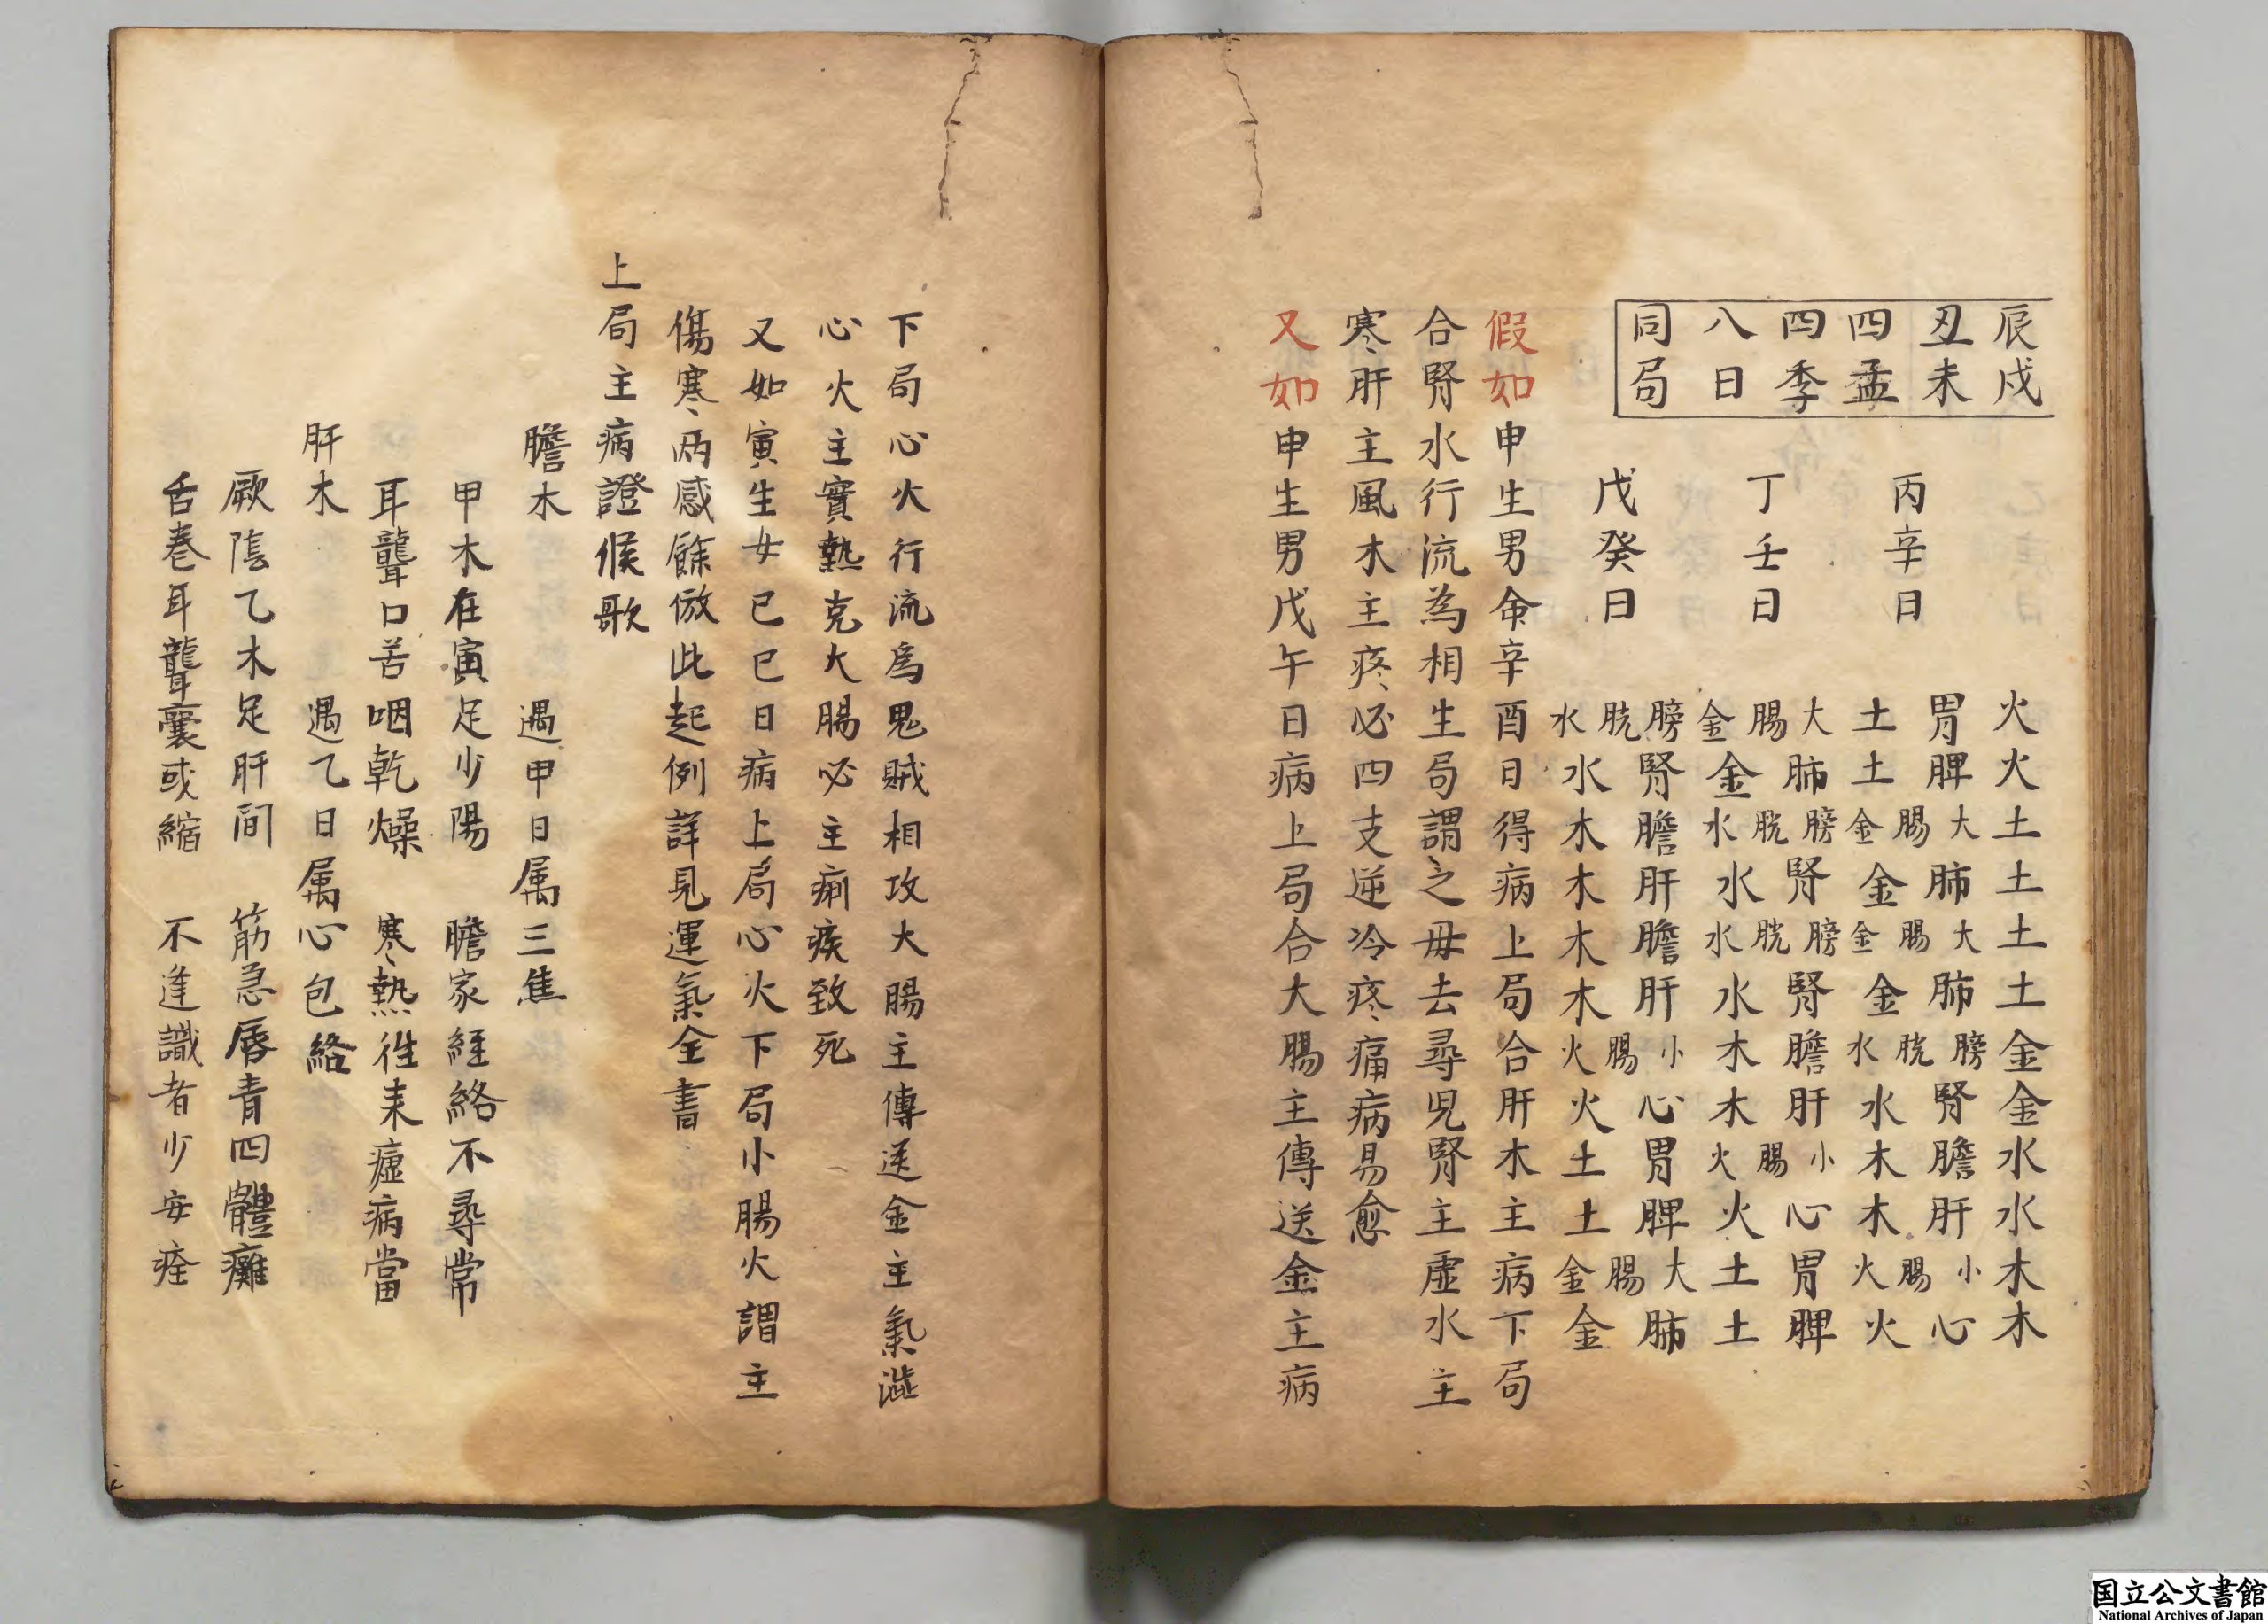 辰戌 火火土土土土金金水水木木
丑未 丙辛日 胃脾大腸肺大腸肺膀胱腎膽肝小腸心
四孟 土土金金金金水水木木火火
四季 大腸肺膀胱腎膀胱腎膽肝小腸心胃脾
八日 丁壬日 金金水水水水木木火火土土
同局 膀胱腎膽肝膽肝小腸心胃脾大腸肺
戊癸日 水水木木木木火火土土金金
假如申生男命辛酉日得病上局合肝木主病下局
合腎水行流為相生局謂之毋去尋児腎主虛水主
寒肝主風木主疼必四支逆冷疼痛病易愈
又如申生男戊午日病上局合大腸主傳送金主病
下局心火行流為鬼賊相攻大腸主傳送金主氣澁
心火主實熱克大腸必主痢疾致死
又如寅生女己巳日病上局心火下局小腸火謂主
傷寒两感餘倣此起例詳見運氣全書
上局主病證候歌
膽木 遇甲日属三焦
甲木在寅足少陽 膽家経絡不尋常
耳聾口苦咽乾燥 寒熱徃来瘧病當
肝木 遇乙日属心包絡
厥陰乙木足肝間 筋急唇青四體癱
舌卷耳聾囊或縮 不逢識者少安痊
国立公文書館
National Archives of Japan